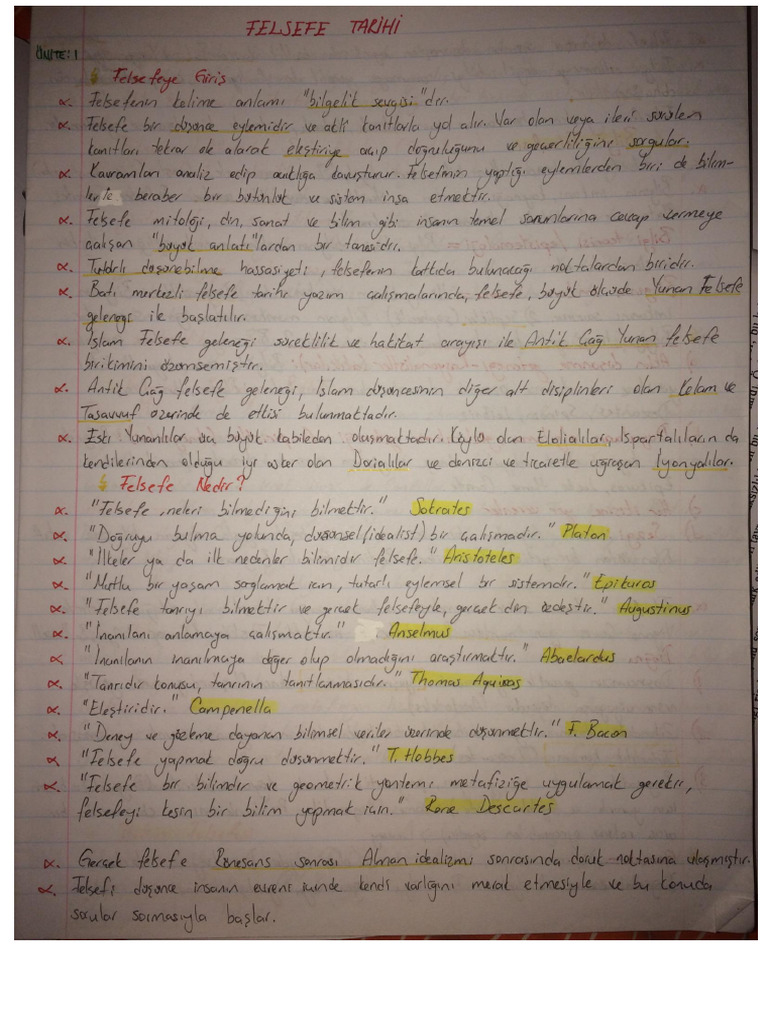 FELSEFE TARİHİ
ÜNİTE: 1
Felsefeye Giriş
α. Felsefenin kelime anlamı "bilgelik sevgisi"dir.
α. Felsefe bir düşünce eylemidir ve akli kanıtlarla yol alır. Var olan veya ileri sürülen
kanıtları tekrar ele alarak eleştiriye açıp doğruluğunu ve geçerliliğini sorgular.
α. Kavramları analiz edip açıklığa kavuşturur. Felsefenin yaptığı eylemlerden biri de bilim-
lerle beraber bir bütünlük ve sistem inşa etmektir.
α. Felsefe mitoloji, din, sanat ve bilim gibi insanın temel sorunlarına cevap vermeye
çalışan "büyük anlatı"lardan bir tanesidir.
α. Tutarlı düşünebilme hassasiyeti, felsefenin katkıda bulunacağı noktalardan biridir.
α. Batı merkezli felsefe tarihi yazım çalışmalarında, felsefe, büyük ölçüde Yunan Felsefe
geleneği ile başlatılır.
α. İslam Felsefe geleneği süreklilik ve hakikat arayışı ile Antik Çağ Yunan felsefe
birikimini özümsemiştir.
α. Antik Çağ felsefe geleneği, İslam düşüncesinin diğer alt disiplinleri olan Kelam ve
Tasavvuf üzerinde de etkisi bulunmaktadır.
α. Eski Yunanlılar üç büyük kabileden oluşmaktadır. Köylü olan Elolialılar, Ispartalıların da
kendilerinden olduğu iyi asker olan Dorialılar ve denizci ve ticaretle uğraşan İyonyalılar.
Felsefe Nedir?
α. "Felsefe, neleri bilmediğini bilmektir." Sokrates
α. "Doğruyu bulma yolunda, düşünsel (idealist) bir çalışmadır." Platon
α. "İlkeler ya da ilk nedenler bilimidir felsefe." Aristoteles
α. "Mutlu bir yaşam sağlamak için, tutarlı eylemsel bir sistemdir." Epikuros
α. "Felsefe tanrıyı bilmektir ve gerçek felsefeyle, gerçek din özdeştir." Augustinus
α. "İnanılanı anlamaya çalışmaktır." Anselmus
α. "İnanılanın inanılmaya değer olup olmadığını araştırmaktır." Abaelardus
α. "Tanrıdır konusu, tanrının tanıtlanmasıdır." Thomas Aquinas
α. "Eleştiridir." Campenella
α. "Deney ve gözleme dayanan bilimsel veriler üzerinde düşünmektir." F. Bacon
α. "Felsefe yapmak doğru düşünmektir." T. Hobbes
α. "Felsefe bir bilimdir ve geometrik yöntemi metafiziğe uygulamak gerekir,
felsefeyi kesin bir bilim yapmak için." Rene Descartes
α. Gerçek felsefe Rönesans sonrası Alman idealizmi sonrasında doruk noktasına ulaşmıştır.
α. Felsefi düşünce insanın evreni içinde kendi varlığını merak etmesiyle ve bu konuda
sorular sormasıyla başlar.